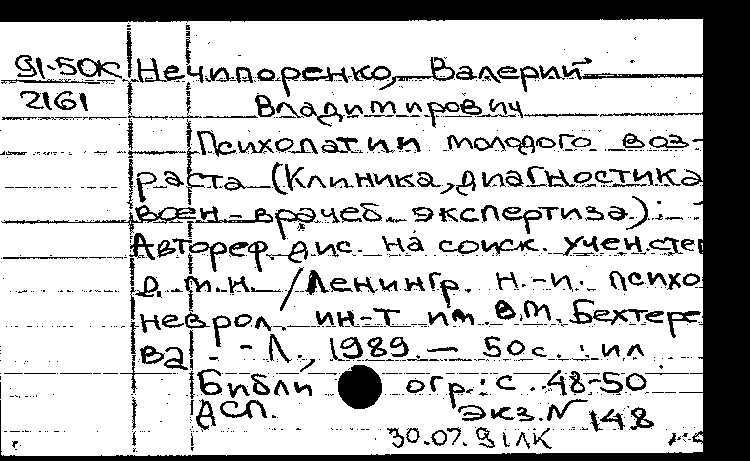 91-50К Нечипоренко, Валерий
2161 Владимирович
Психопатии молодого воз-
раста (Клиника, диагностика
воен-врачеб. экспертиза.):
Автореф. дис. на соиск. учен. степ
д.м.н. / Ленингр. н.-и. психо
неврол. ин-т им. В.М. Бехтере
ва. - Л., 1989. — 50 с. : ил
Библи огр.: с. 48-50
ДСП. Экз. N 148
30.07.91